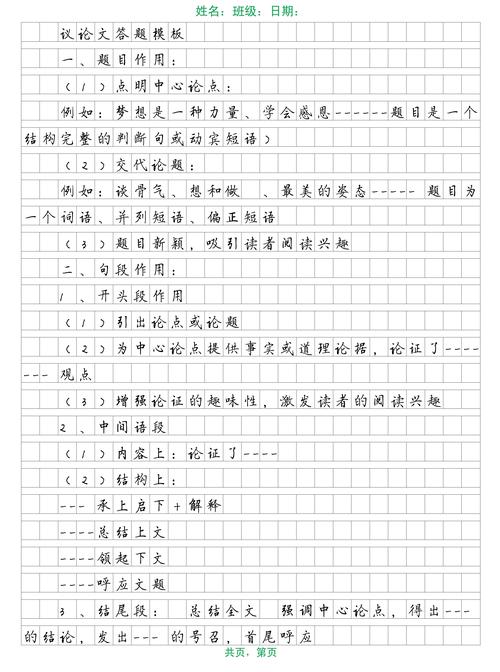 姓名：班级：日期：
议论文答题模板
一、题目作用：
（1）点明中心论点：
例如：梦想是一种力量、学会感恩------题目是一个
结构完整的判断句或动宾短语）
（2）交代论题：
例如：谈骨气、想和做 、最美的姿态----- 题目为
一个词语、并列短语、偏正短语
（3）题目新颖，吸引读者阅读兴趣
二、句段作用：
1、开头段作用
（1）引出论点或论题
（2）为中心论点提供事实或道理论据，论证了----
--- 观点
（3）增强论证的趣味性，激发读者的阅读兴趣
2、中间语段
（1）内容上：论证了----
（2）结构上：
--- 承上启下+解释
----总结上文
----领起下文
----呼应文题
3、结尾段： 总结全文 强调中心论点，得出---
的结论，发出--- 的号召，首尾呼应
共页，第页